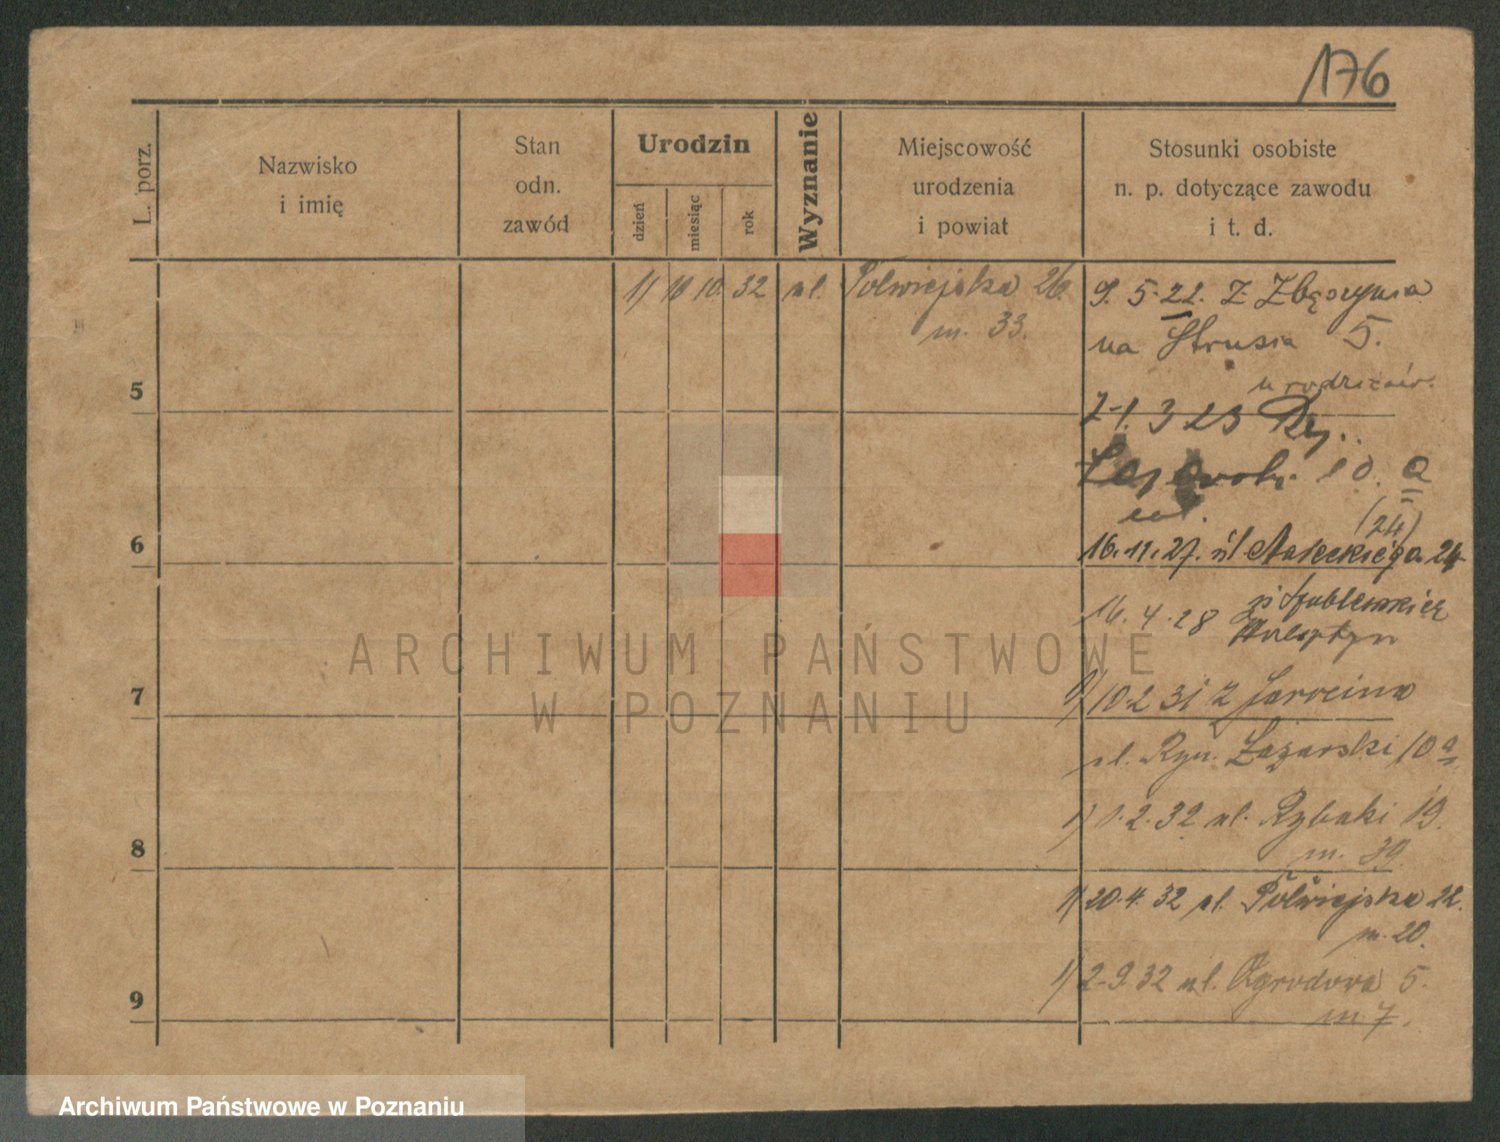 176
L. porz.
Nazwisko
i imię
Stan
odn.
zawód
Urodzin
dzień
miesiąc
rok
Wyznanie
Miejscowość
urodzenia
i powiat
Stosunki osobiste
n. p. dotyczące zawodu
i t. d.
1/ 10 10. 32 ul. Półwiejska 26.
m. 33.
9. 5. 22. Z Zbąszynia
na Strusia 5.
u rodziców.
5
Z 1. 3 23 Ry..
10. a
(24)
6
16.11.27. Małeckiego 24
16. 4. 28
7
1/ 10.2 31 z Jarocina
ul. Ryn. Łazarski 10 a
1/ 1. 2. 32 ul. Rybaki 19.
8
m. 39.
1/ 20. 4. 32 ul. Półwiejska 22.
m. 20.
1/ 2. 9. 32 ul. Ogrodowa 5.
9
m. 7.
ARCHIWUM PAŃSTWOWE
W POZNANIU
Archiwum Państwowe w Poznaniu